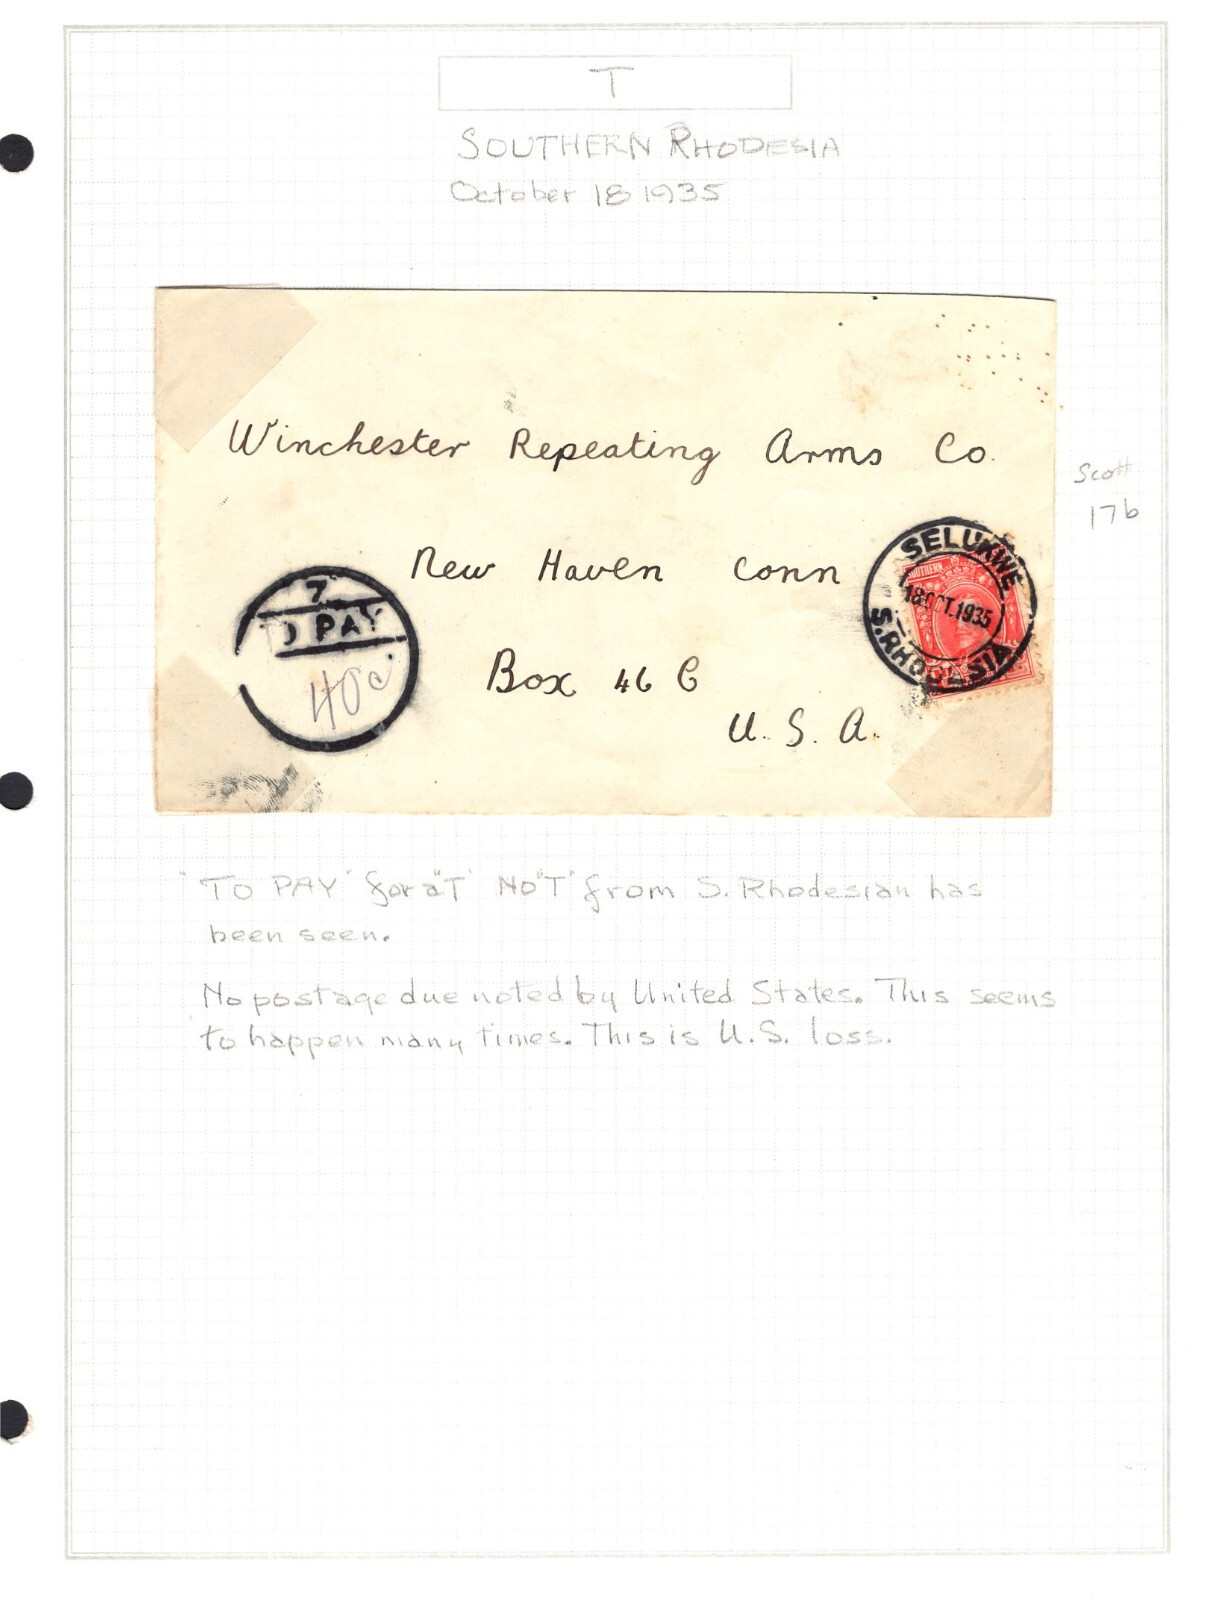 T
SOUTHERN RHODESIA
October 18 1935
Winchester Repeating Arms Co.
Scott
17b
SELUKWE
18 OCT. 1935
S. RHODESIA
SOUTHERN
New Haven Conn
7
TO PAY
40c
Box 46 C
U. S. A.
"TO PAY" for a "T" No "T" from S. Rhodesian has
been seen.
No postage due noted by United States. This seems
to happen many times. This is U.S. loss.